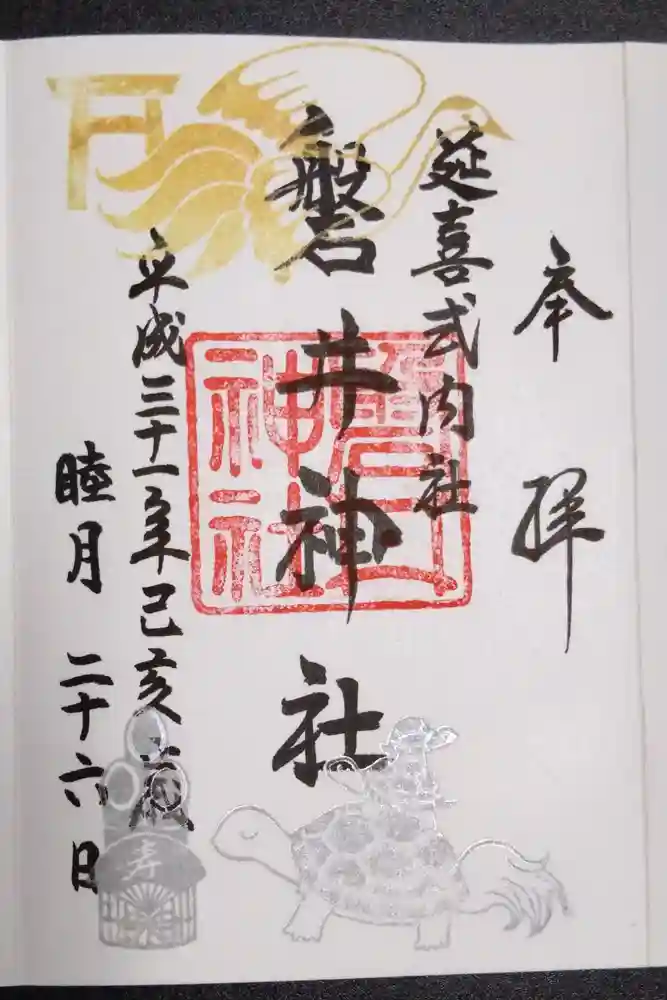 奉拝
延喜式内社
磐井神社
平成三十一年己亥歳
睦月 二十六日
寿